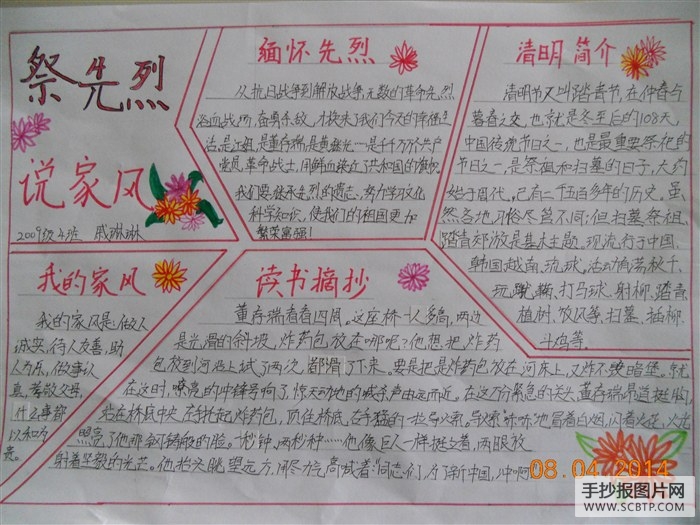 祭先烈
说家风
2009级4班 戚琳琳
缅怀先烈
从抗日战争到解放战争,无数的革命先烈
浴血战场,奋勇杀敌,才换来了我们今天的幸福生
活,是江姐,是董存瑞,是黄继光……是千千万万个共产
党员、革命战士,用鲜血染红了共和国的旗帜。
我们要继承先烈的遗志,努力学习文化
科学知识,使我们的祖国更加
繁荣富强!
清明简介
清明节又叫踏青节,在仲春与
暮春之交,也就是冬至后的108天,
中国传统节日之一,也是最重要祭祀的
节日之一,是祭祖和扫墓的日子,大约
始于周代,已有二千五百多年的历史。虽
然各地习俗尽管不同,但扫墓祭祖、
踏青郊游是基本主题。现流行于中国、
韩国、越南、琉球。活动有荡秋千、
玩蹴鞠、打马球、射柳、踏青
植树、放风筝、扫墓、插柳、
斗鸡等。
我的家风
我的家风是:做人
诚实,待人友善,助
人为乐,做事认
真,孝敬父母,
什么事都
以和为
贵。
读书摘抄
董存瑞看看四周。这座桥一人多高,两边
是光滑的斜坡,炸药包放在哪呢?他想把炸药
包放到河沿上,试了两次,都滑了下来。要是把是炸药包放在河床上,又炸不毁暗堡。就
在这时,嘹亮的冲锋号响了,惊天动地的喊杀声由远而近。在这万分紧急的关头,董存瑞昂首挺胸,
站在桥底中央,左手托起炸药包,顶住桥底,右手猛的一拉导火索。导火索“哧哧”地冒着白烟,闪着火花,火光
照亮了他那钢铸般的脸。一秒钟,两秒种……他像巨人一样挺立着,两眼放
射着坚毅的光芒。他抬头眺望远方,用尽力气高喊着:同志们,为了新中国,冲啊
08.04.2014
手抄报图片网
WWW.SCBTP.COM